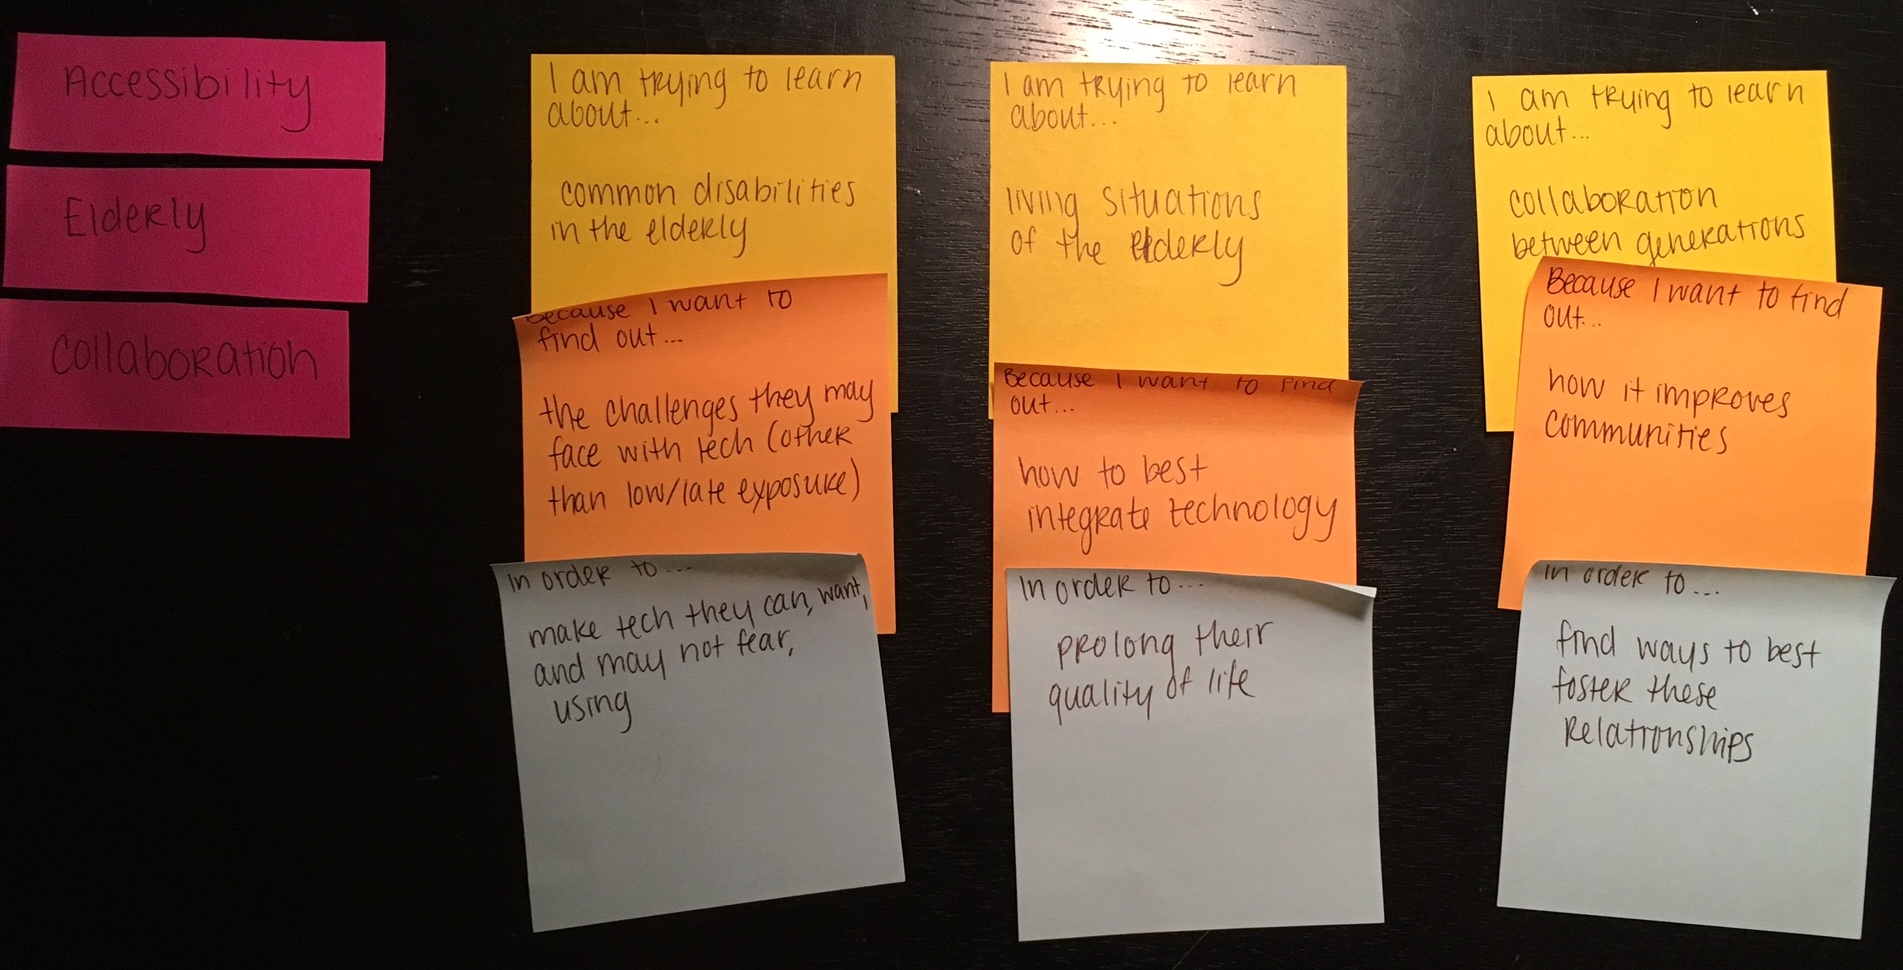 Accessibility
Elderly
collaboration
I am trying to learn
about...
common disabilities
in the elderly
Because I want to
find out...
the challenges they may
face with tech (other
than low/late exposure)
In order to...
make tech they can, want,
and may not fear,
using
I am trying to learn
about...
living situations
of the elderly
Because I want to find
out...
how to best
integrate technology
In order to...
prolong their
quality of life
I am trying to learn
about...
collaboration
between generations
Because I want to find
out...
how it improves
communities
In order to...
find ways to best
foster these
relationships